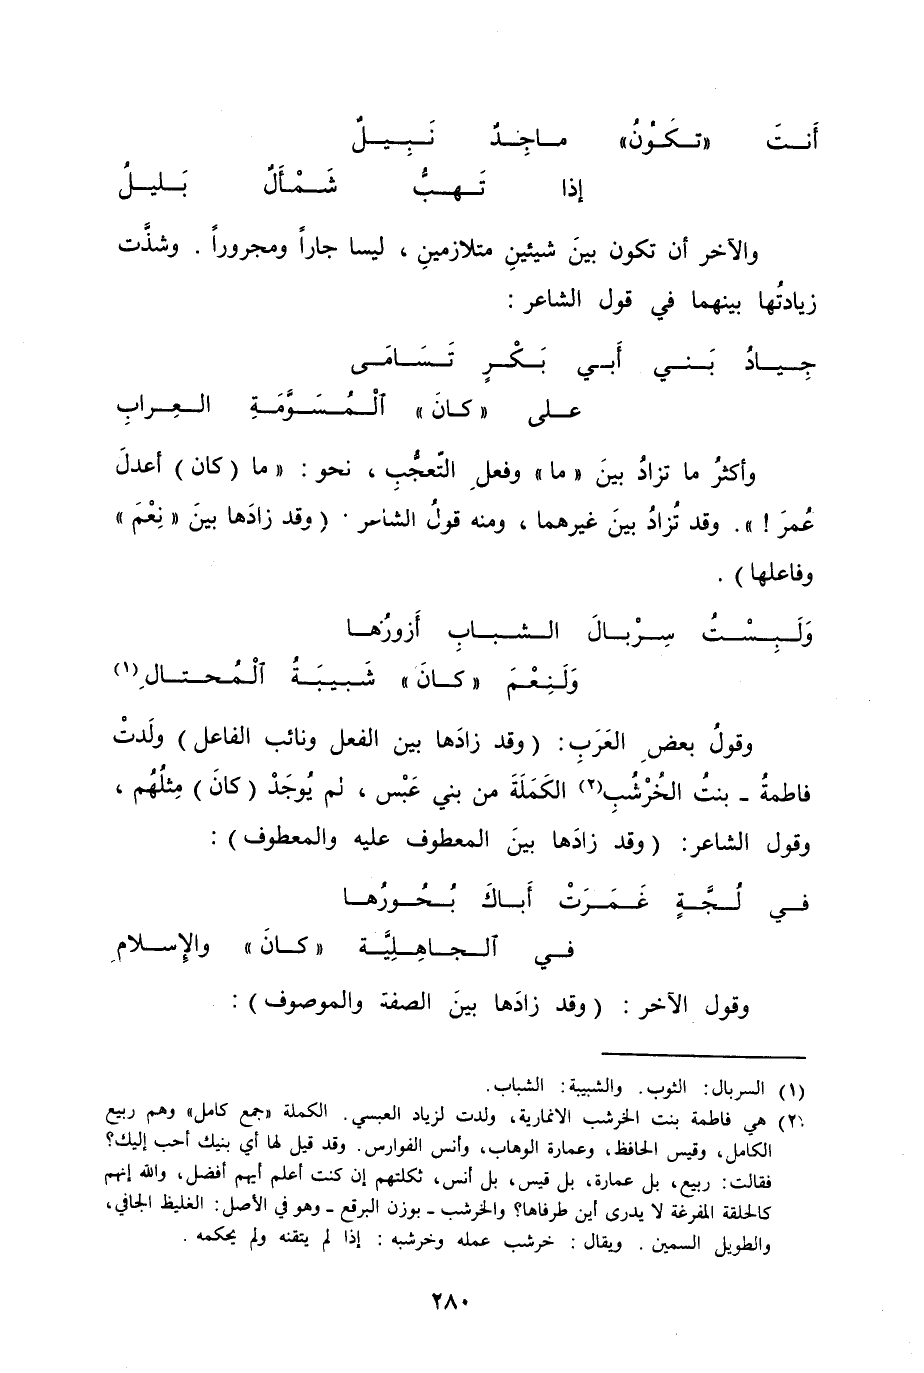 أَنتَ «تَكُوْنُ» ماجِدٌ نَبِيلٌ
إذا تَهبُّ شَمْأَلٌ بَليلُ
والآخر أن تكون بينَ شيئينِ متلازمينِ ، ليسا جاراً ومجروراً . وشذَّت
زيادتُها بينهما في قول الشاعر :
جِيادُ بَني أَبي بَكْرٍ تَسَامَى
على «كانَ» ٱلْمُسَوَّمَةِ العِرابِ
وأكثرُ ما تزادُ بينَ «ما» وفعلِ التّعجُّبِ ، نحو : «ما (كان) أعدلَ
عُمرَ !». وقد تُزادُ بينَ غيرهما ، ومنه قولُ الشاعر . (وقد زادَها بينَ «نِعْمَ»
وفاعلها) .
وَلَبِسْتُ سِرْبالَ الشبابِ أَزورُها
وَلَنِعْمَ «كانَ» شَبيبَةُ ٱلْمُحتالِ(١)
وقولُ بعضِ العَرَبِ: (وقد زادَها بين الفعل ونائب الفاعل) ولَدتْ
فاطمةُ - بنتُ الخُرْشُبِ(٢) الكَمَلَةَ من بني عَبْس ، لم يُوجَدْ (كانَ) مِثلُهُم ،
وقول الشاعر: (وقد زادَها بينَ المعطوف عليه والمعطوف) :
في لُجَّةٍ غَمَرَتْ أَباكَ بُحُورُها
في ٱلجاهِلِيَّة «كانَ» والإسلامِ
وقول الآخر : (وقد زادَها بينَ الصفة والموصوف) :
(١) السربال: الثوب. والشبيبة: الشباب.
(٢) هي فاطمة بنت الخرشب الانمارية، ولدت لزياد العبسي. الكملة «جمع كامل» وهم ربيع
الكامل، وقيس الحافظ، وعمارة الوهاب، وأنس الفوارس. وقد قيل لها أي بنيك أحب إليك؟
فقالت: ربيع، بل عمارة، بل قيس، بل أنس، ثكلتهم إن كنت أعلم أيهم أفضل، والله إنهم
كالحلقة المفرغة لا يدرى أين طرفاها؟ والخرشب - بوزن البرقع - وهو في الأصل: الغليظ الجافي،
والطويل السمين . ويقال : خرشب عمله وخرشبه : إذا لم يتقنه ولم يحكمه .
٢٨٠